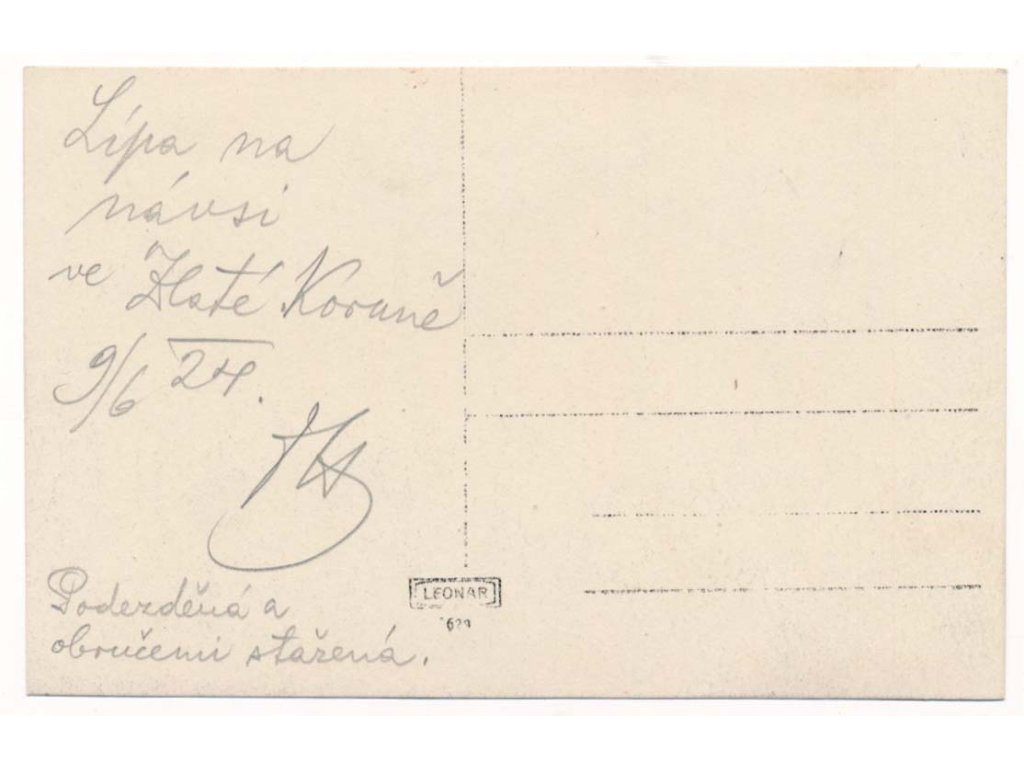 Lípa na
návsi
ve Zlaté Koruně
9/6 24.
Podezděná a
obručemi stažená.
LEONAR